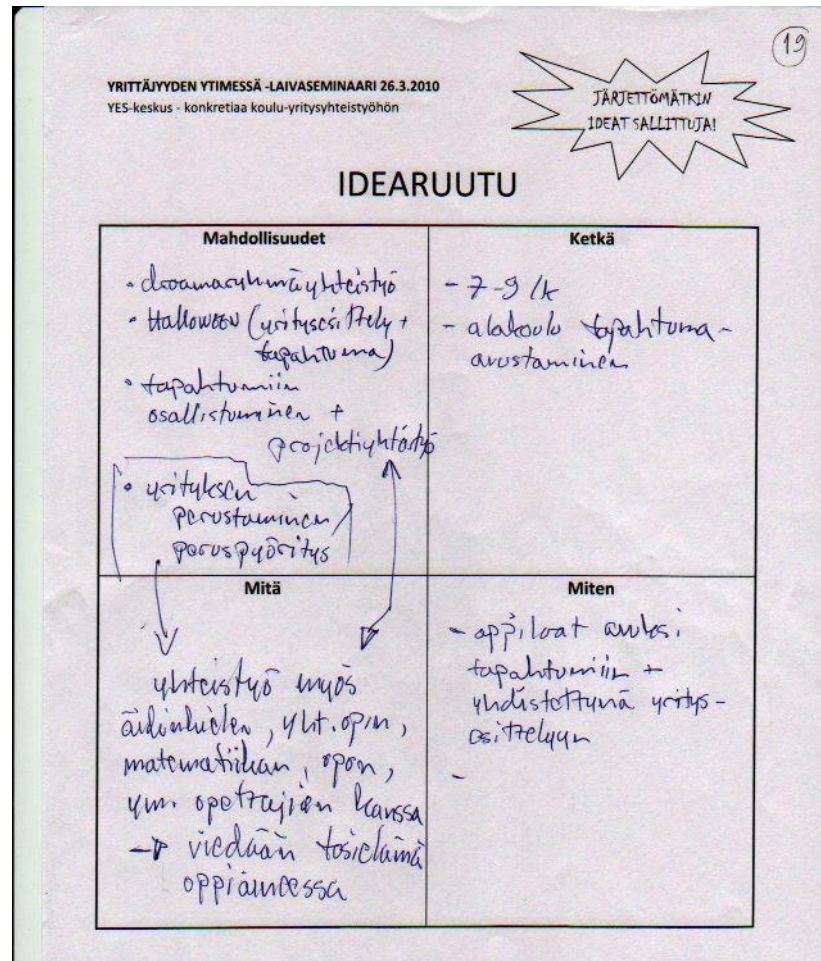 19
YRITTÄJYYDEN YTIMESSÄ -LAIVASEMINAARI 26.3.2010
YES-keskus - konkretiaa koulu-yritysyhteistyöhön
JÄRJETTÖMÄTKIN
IDEAT SALLITTUJA!
IDEARUUTU
Mahdollisuudet
• draamaryhmäyhteistyö
• Halloween (yritysesittely +
tapahtuma)
• tapahtumiin
osallistuminen +
projektiyhtästyö
• yrityksen
perustaminen/
peruspyöritys
Ketkä
- 7-9 lk
- alakoulu tapahtuma-
avustaminen
Mitä
yhteistyö myös
äidinkielen, yht.opin,
matematiikan, opon,
ym. opettajien kanssa
→ viedään tosielämä
oppiaineessa
Miten
- oppilaat avuksi
tapahtumiin +
yhdistettynä yritys-
esittelyyn
-